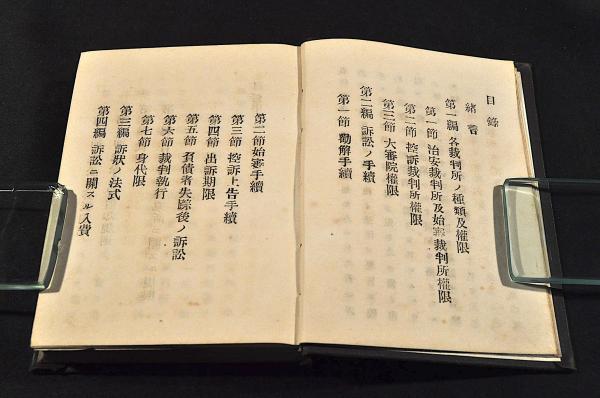 目錄
緒言
第一編 各裁判所ノ種類及權限
第一節 治安裁判所及始審裁判所權限
第二節 控訴裁判所權限
第三節 大審院權限
第二編 訴訟ノ手續
第一節 勸解手續
第二節 始審手續
第三節 控訴上告手續
第四節 出訴期限
第五節 負債者失踪後ノ訴訟
第六節 裁判執行
第七節 身代限
第三編 訴狀ノ法式
第四編 訴訟ニ關スル入費